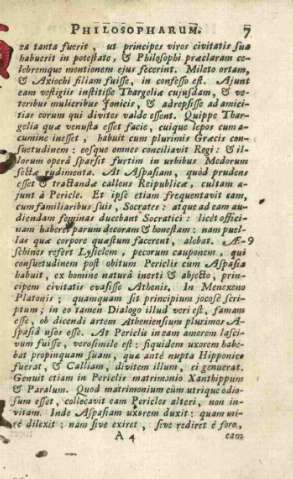 PHILOSOPHARUM. 7
ea tanta fuerit, ut principes viros civitatis suæ
habuerit in potestate, & Philosophi præclaram ce-
lebremque mentionem ejus fecerint. Mileto ortam,
& Axiochi filiam fuisse, in confesso est. Ajunt
eam vestigiis institisse Thargeliæ cujusdam, & ve-
teribus mulieribus Jonicis, & adrepsisse ad amici-
tias eorum qui divites valde essent. Quippe Thar-
gelia quæ venusta esset facie, cuique lepos cum a-
cumine inesset, habuit cum plurimis Græcis con-
suetudinem: eosque omnes conciliavit Regi: & il-
lorum operâ sparsit furtim in urbibus Medorum
sectæ rudimenta. At Aspasiam, quòd prudens
esset & tractandæ callens Reipublicæ, cultam a-
junt à Pericle. Et ipse etiam frequentavit eam,
cum familiaribus suis, Socrates: atque ad eam au-
diendam feminas ducebant Socratici: licèt offici-
nam haberet parum decoram & honestam: nam puel-
las quæ corpore quæstum facerent, alebat. Æ- 9
schines refert Lysiclem, pecorum cauponem, qui
consuetudinem post obitum Periclis cum Aspasia
habuit, ex homine naturâ inerti & abjecto, prin-
cipem civitatis evasisse Athenis. In Menexeno
Platonis; quamquam sit principium jocosè scri-
ptum; in eo tamen Dialogo illud veri est, famam
esse, ob dicendi artem Atheniensium plurimos A-
spasiâ usos esse. At Periclis in eam amorem lasci-
vum fuisse, verosimile est: siquidem uxorem habe-
bat propinquam suam, quæ antè nupta Hipponico
fuerat, & Calliam, divitem illum, ei genuerat.
Genuit etiam in Periclis matrimonio Xanthippum
& Paralum. Quod matrimonium cùm utrique odio-
sum esset, collocavit eam Pericles alteri, non in-
vitam. Inde Aspasiam uxorem duxit: quam mi-
rè dilexit: nam sive exiret, sive rediret è foro,
A 4 eam